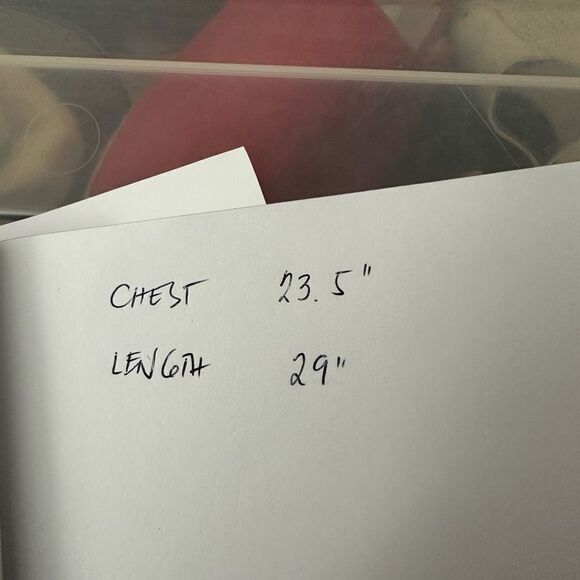 CHEST 23.5"
LENGTH 29"